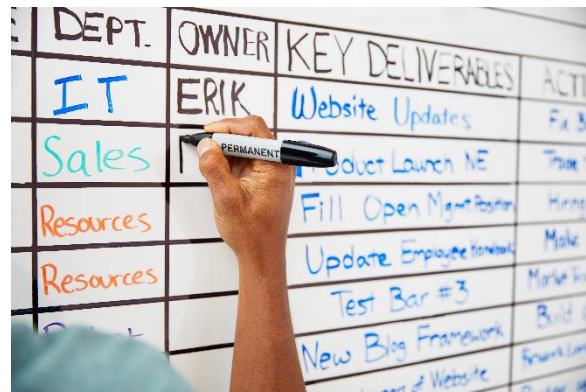 DEPT. OWNER KEY DELIVERABLES
IT ERIK Website Updates Fix
Sales PERMANENT Product Launch NE
Resources Fill Open Mgmt Position
Resources Update Employee Handbook Make
Test Bar #3 Market
New Blog Framework Build
Website